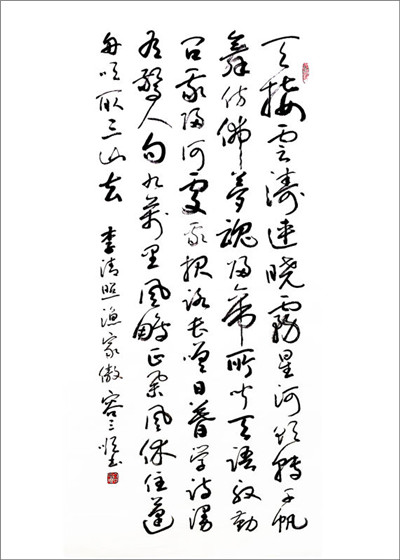 天接雲濤連晓霧星河欲轉千帆
舞仿佛夢魂歸帝所聞天語殷勤
问我歸何處我报路長嗟日暮学诗漫
有驚人句九萬里風鵬正举風休住蓬
舟吹取三山去 李清照漁家傲